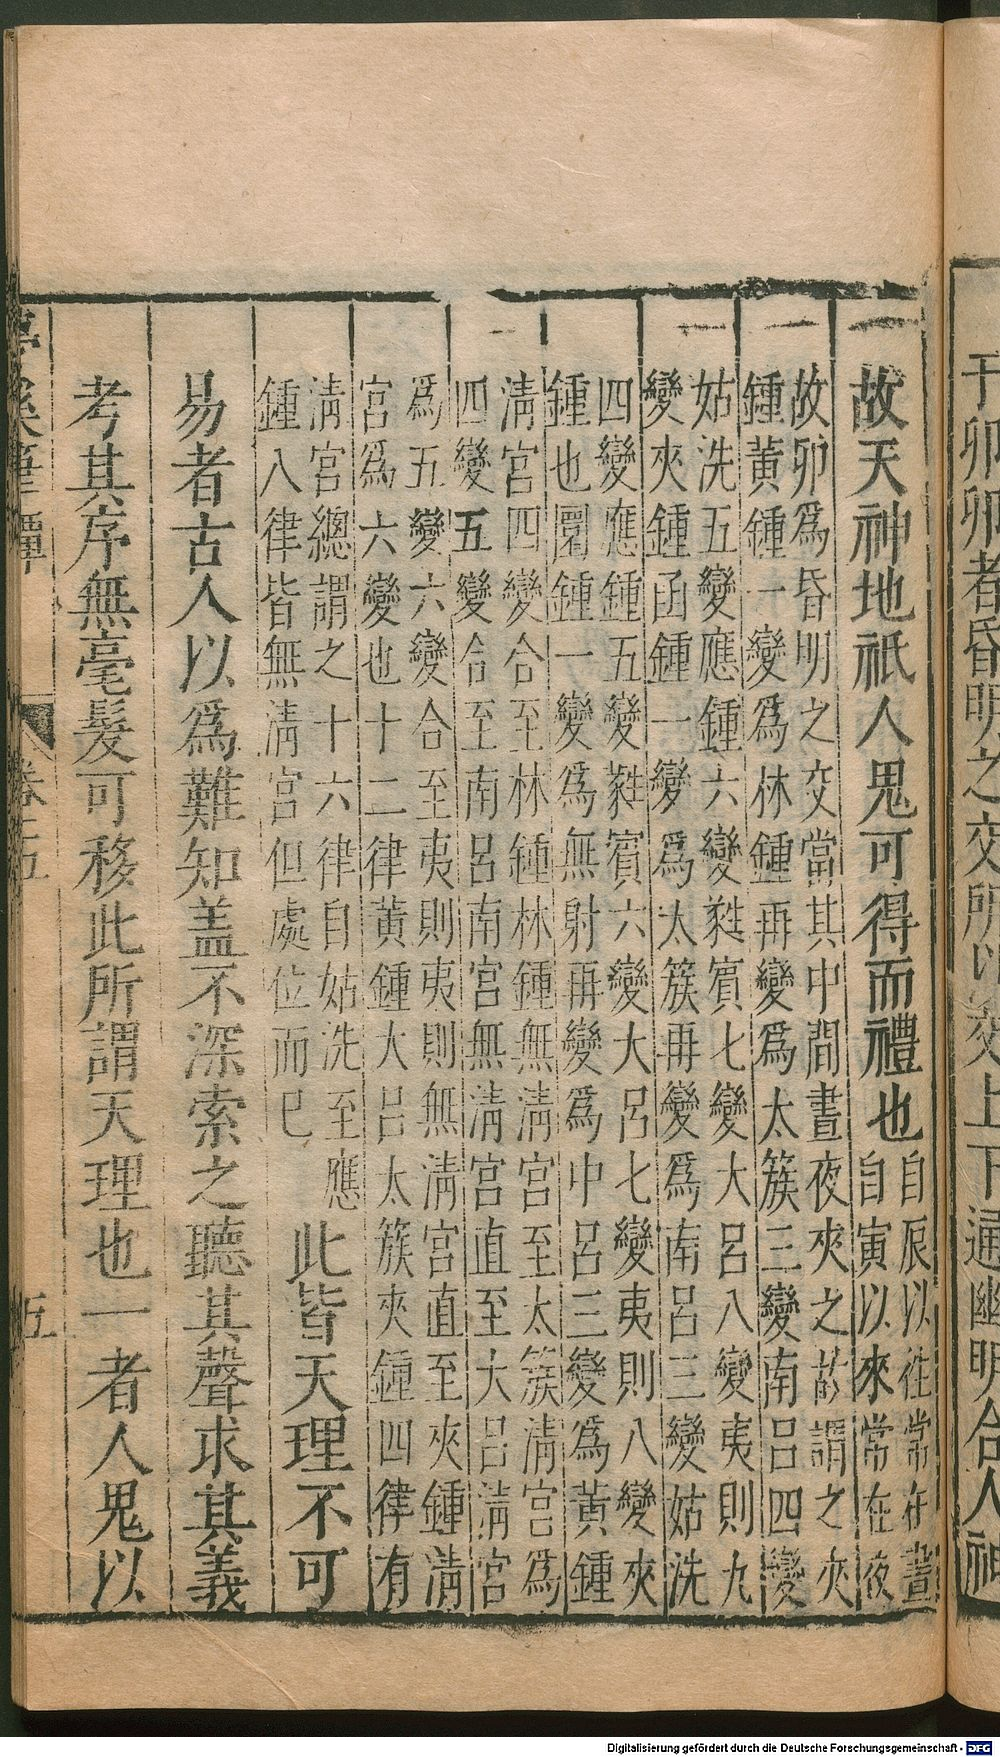 于卯卯者昏明之交所以交上下通幽明合人神
故天神地祇人鬼可得而禮也自辰以往常在晝
自寅以來常在夜
故卯爲昏明之交當其中間晝夜夾之故謂之夾
鍾黃鍾一變爲林鍾再變爲太簇三變南呂四變
姑洗五變應鍾六變蕤賓七變大呂八變夷則九
變夾鍾函鍾一變爲太簇再變爲南呂三變姑洗
四變應鍾五變蕤賓六變大呂七變夷則八變夾
鍾也圜鍾一變爲無射再變爲中呂三變爲黃鍾
淸宮四變合至林鍾林鍾無淸宮至太簇淸宮爲
四變五變合至南呂南宮無淸宮直至大呂淸宮
爲五變六變合至夷則夷則無淸宮直至夾鍾淸
宮爲六變也十二律黃鍾大呂太簇夾鍾四律有
淸宮總謂之十六律自姑洗至應
鍾八律皆無淸宮但處位而已
此皆天理不可
易者古人以爲難知盖不深索之聽其聲求其義
考其序無毫髮可移此所謂天理也一者人鬼以
卷五
五
Digitalisierung gefördert durch die Deutsche Forschungsgemeinschaft - DFG